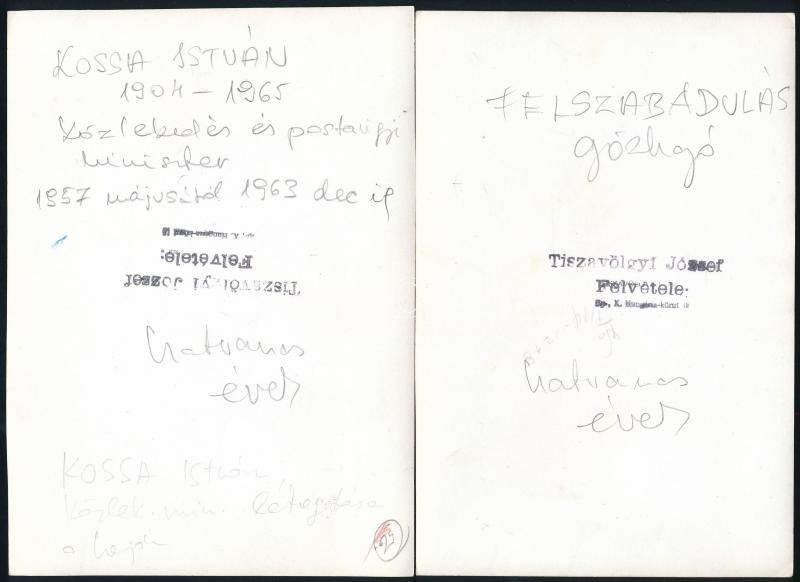 KOSSA ISTVÁN
1904 – 1965
Közlekedés és postaügyi
miniszter
1957 májusától 1963 dec ig
Bp., X. Hungária-körut
Felvétele:
Tiszavölgyi József
hatvanas
évek
KOSSA István
közlek. min. látogatása
a hajón
FELSZABADULÁS
gőzhajó
Tiszavölgyi József
Felvétele:
Bp., X. Hungária-körut
hatvanas
évek